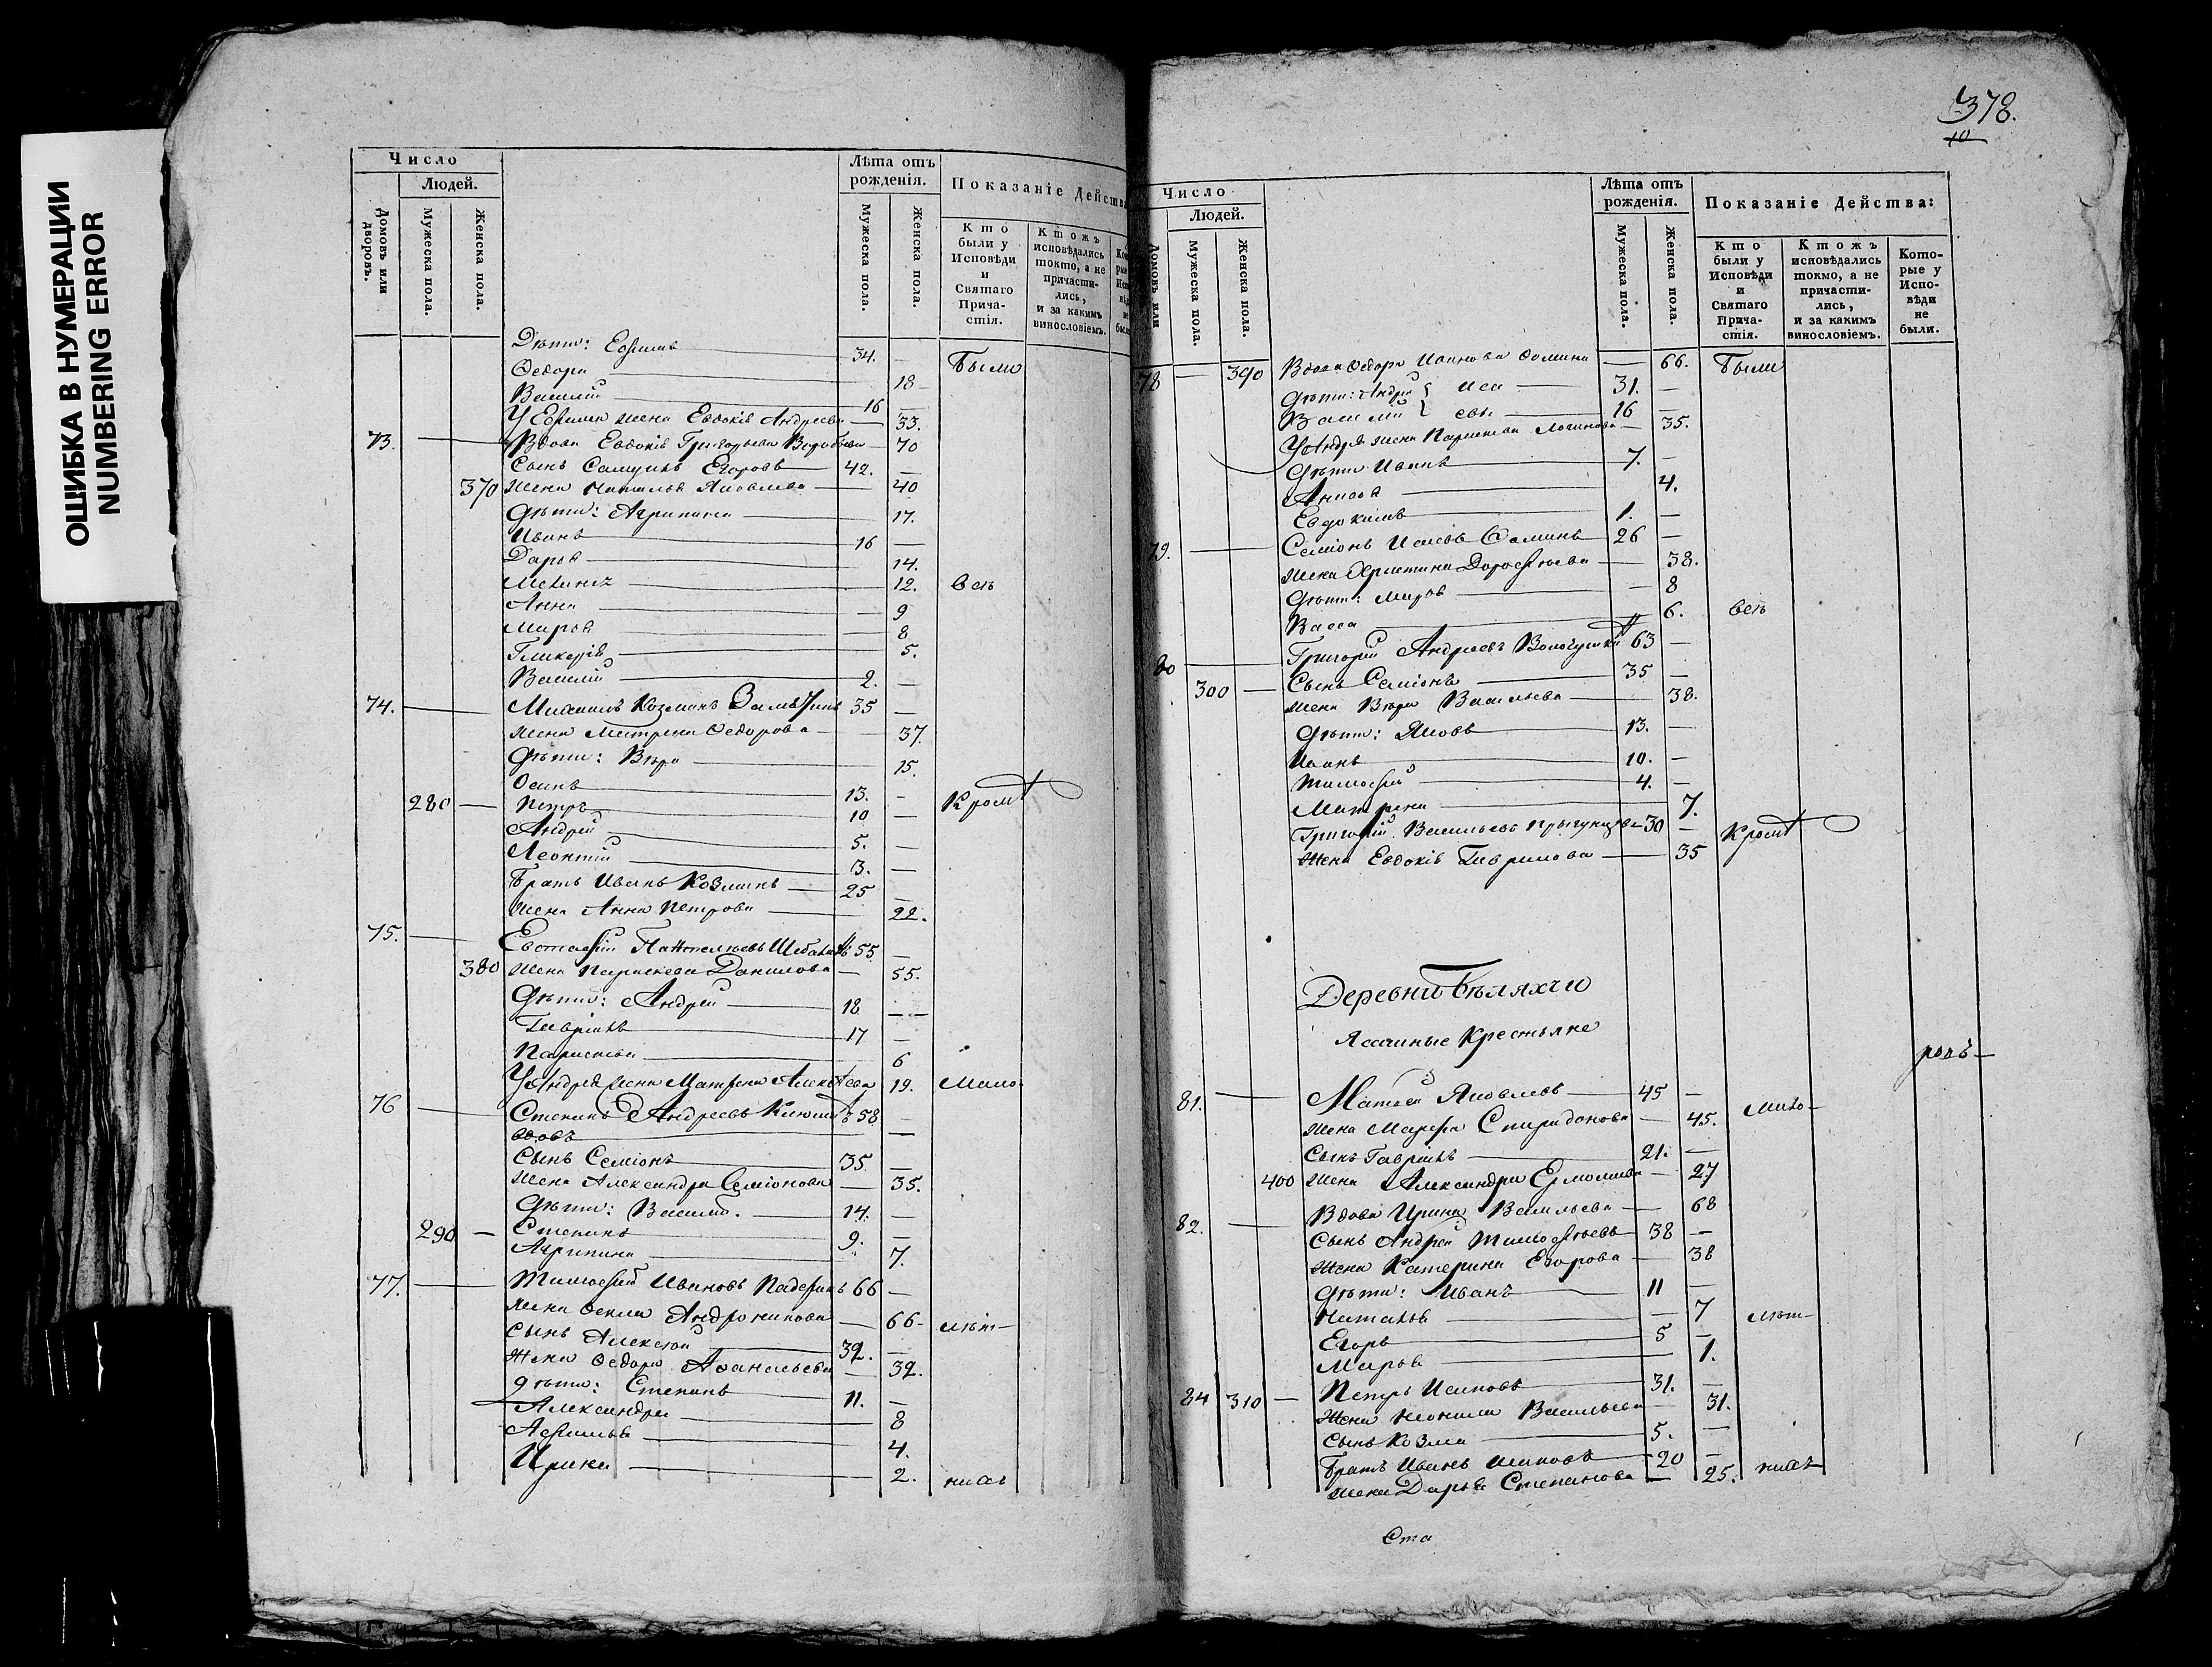 ОШИБКА В НУМЕРАЦИИ
NUMBERING ERROR
Число
Людей.
Домовъ или дворовъ.
Мужеска пола.
Женска пола.
Лѣта отъ рожденія.
Мужеска пола.
Женска пола.
Показаніе Действа
Кто были у Исповѣди и Святаго Прича-стія.
Ктожъ исповѣдались токмо, а не причасти-лись, и за какимъ винословіемъ.
Дѣти: Ефимъ 34. — Были
Федора 18
Василій 16 —
У Ефима жена Евдокія Андреева 33.
73. Вдова Евдокія Григорьева 70
Сынъ Самуилъ Егоровъ 42. —
370 жена Наталья Яковлева 40
Дѣти: Агрипина 17.
Иванъ 16 —
Дарья 14.
12. всѣ
Анна 9
Марья 8
Гликерія 5.
Василій 2. —
74. Михаилъ Козминъ 35 —
жена Матрена Федорова 37.
Дѣти: Вѣра 15.
Осипъ 13. —
280 — Петръ 10 — Кромѣ
Андрей 5. —
Леонтій 3. —
Братъ Иванъ Козминъ 25 —
жена Анна Петрова 22.
75. Евстафій 55 —
380 жена Параскева Данилова 55.
Дѣти: Андрей 18 —
Гавріилъ 17 —
Параскева 6
У Андрея жена Матрена Алексѣева 19. Мало-
76 Степанъ Андреевъ 58 —
вдовъ —
Сынъ Семіонъ 35 —
жена Александра Семіонова 35.
Дѣти: Василій. 14. —
290 — Степанъ 9. —
Агрипина 7.
77. Тимофей Ивановъ Падеринъ 66 —
жена Фекла Андроникова 66- лѣт-
Сынъ Алексѣй 32. —
жена Федора Афанасьева 32.
Дѣти: Степанъ 11. —
Александра 8
Афимья 4.
Ирина 2. нихъ
378.
10
Число
Людей.
Домовъ или
Мужеска пола.
Женска пола.
Лѣта отъ рожденія.
Мужеска пола.
Женска пола.
Показаніе Действа:
Кто были у Исповѣди и Святаго Прича-стія.
Ктожъ исповѣдались токмо, а не причасти-лись, и за какимъ винословіемъ.
Кото-рые у Испо-вѣди не были.
78 — 390 Вдова Федора Иванова Фомина — 66. Были
Дѣти: Андрей Иса 31. —
Василій евы 16 —
У Андрея жена Параскева Логинова 35.
Дѣти Иванъ 7. —
Анисья 4.
Евдокимъ 1. —
79. Семіонъ Исаевъ Фоминъ 26 —
жена Христина Дорофѣева 38.
Дѣти: Марья 8
Васса 6. всѣ
80 Григорій Андреевъ 63 —
300 — Сынъ Семіонъ 35 —
жена Вѣра Васильева 38.
Дѣти: Яковъ 13. —
Иванъ 10. —
Тимофей 4. —
Матрена 7.
Григорій Васильевъ 30 — Кромѣ
жена Евдокія Гаврилова 35
Деревни Бѣляхчю
Ясашные Крестьяне
роду-
81. Матвей Яковлевъ 45 —
жена Марфа Спиридонова 45. мало-
Сынъ Гавріилъ 21. —
400 жена Александра Ермолаева 27
82. Вдова Ирина Васильева 68
Сынъ Андрей Тимофѣевъ 38 —
жена Катерина Егорова 38
Дѣти: Иванъ 11 —
Наталья 7 лѣт-
Егоръ 5 —
Марья 1.
84 310 — Петръ Исаковъ 31. —
жена Неонила Васильева 31.
Сынъ Козма 5. —
Братъ Иванъ Исаковъ 20 —
жена Дарья Степанова 25. нихъ
Ста